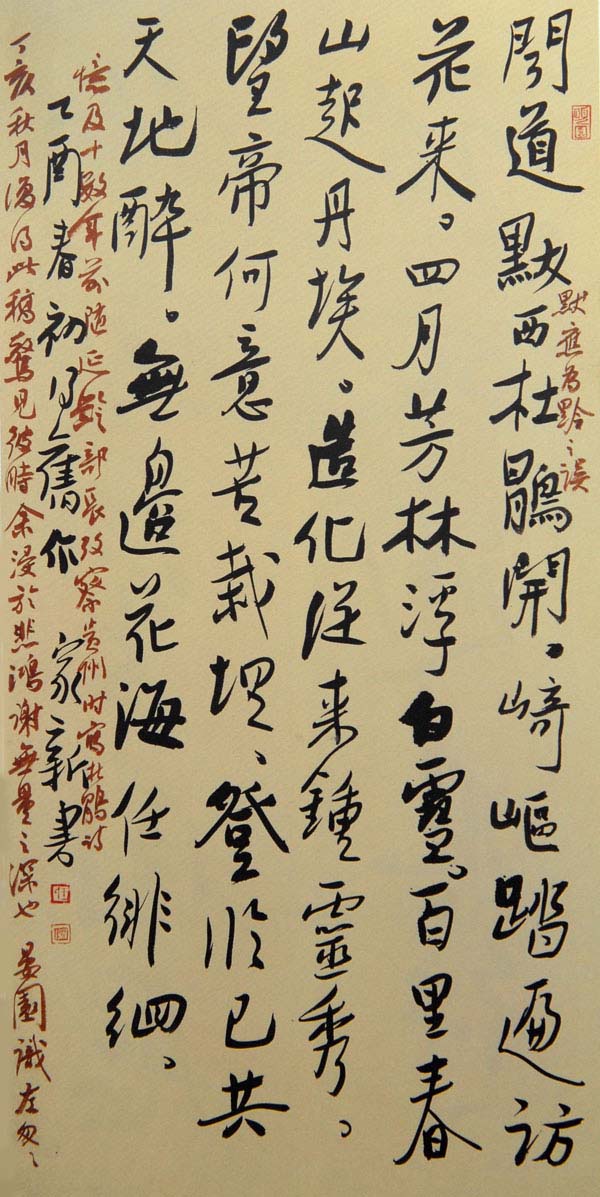 聞道默西杜鵑開、崎嶇踏遍訪
默應為黔之誤
花来。四月芳林浮白雪。百里春
山起丹埃。造化従来鍾靈秀。
望帝何意苦栽培、登临已共
天地醉。無邊花海任徘徊、
憶及十數年前随延齡部長攷察贵州时寫杜鵑诗
乙酉春初舊作 家新書
丁亥秋月得此稿驚見彼時余浸於悲鴻謝無量之深也 園識